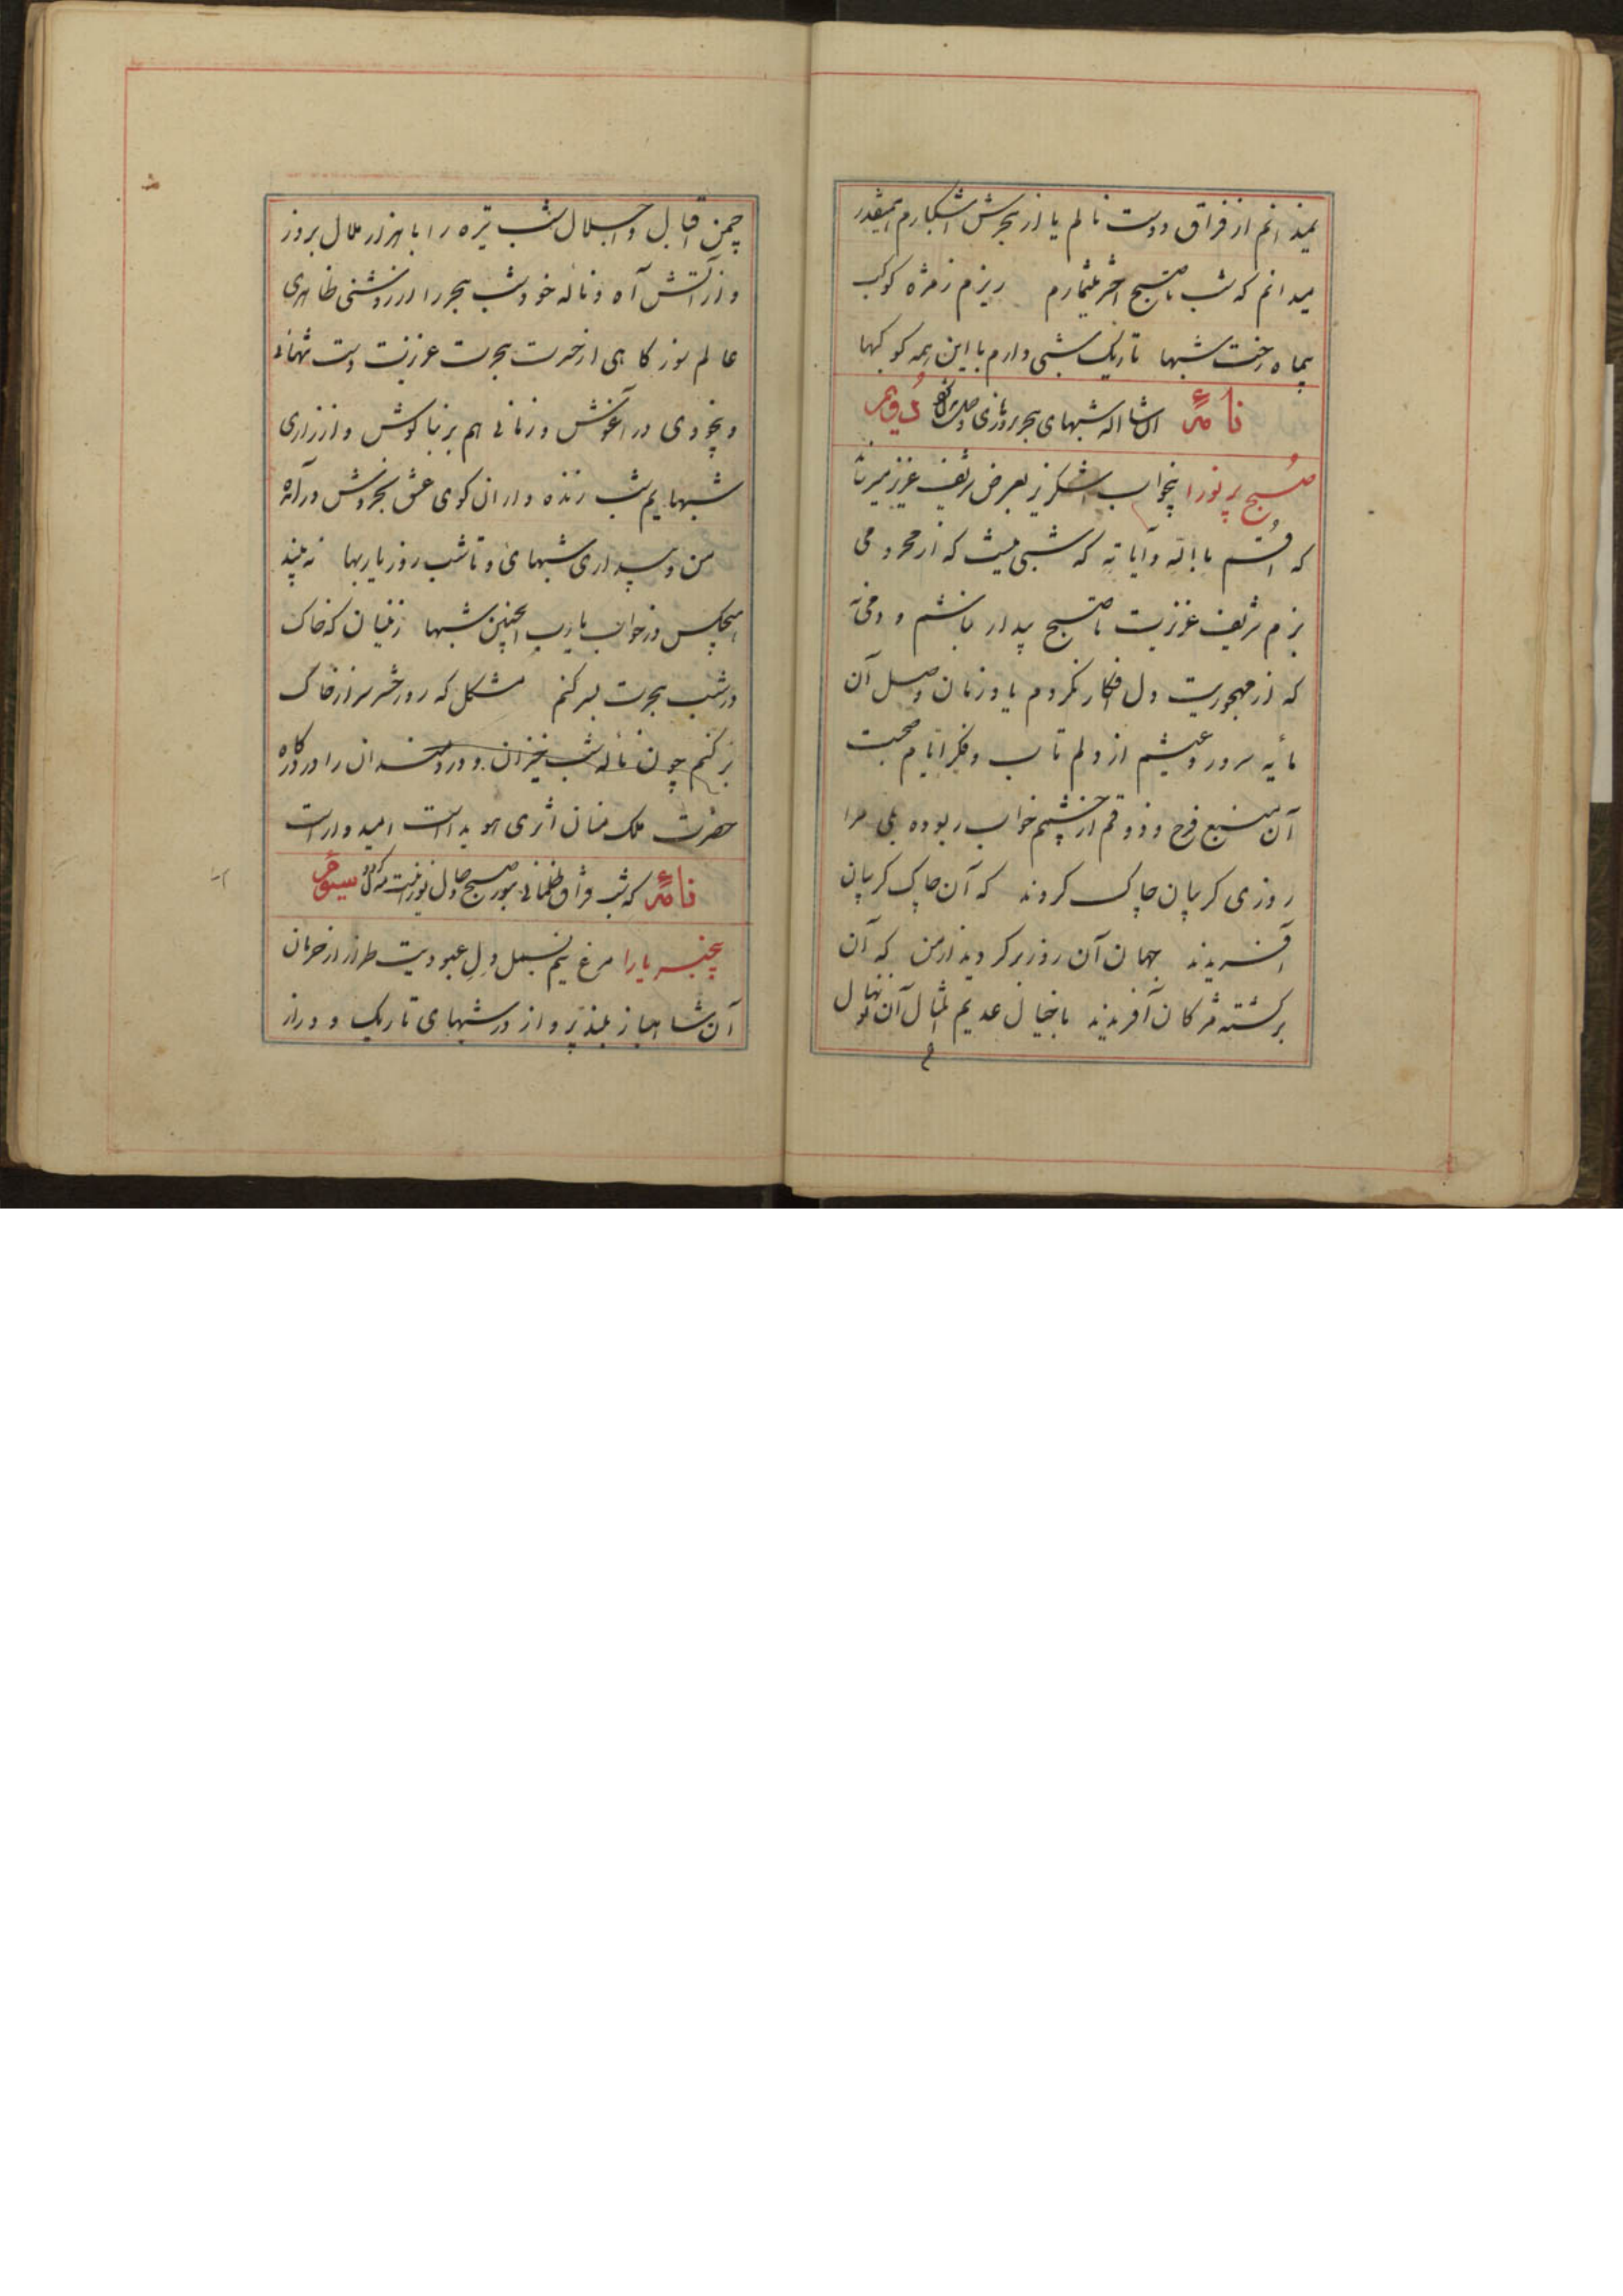 نمیدانم از فراق دوست نالم یا از هجرش اشکبارم اینقدر
میدانم که شب تا صبح اختر میشمارم ریزم ز مژه کوکب
بیماه رخت شبها تاریک شبی دارم با این همه کوکبها
نامهٔ شبهای هجر دوم
صبح پرنور ا بیخواب شکرریز بعرض شریف عزیز میرساند
که اقسم بالله وآیاته که شبی نیست که از محرومی
بزم شریف عزیزت تا صبح بیدار نباشم و دمی نه
که از مهجوریت دل فکار نکردم یاد زمان وصل آن
مایه سرور و عیشم از دلم تاب و فکر ایام صحبت
آن منبع فرح و ذوقم از چشم خواب ربوده بلی مرا
روزی کریبان چاک کردند که آن چاک کریبان
آفریدند جهان آن روز برکردید از من که آن
برکشته مژکان آفریدند با خیال عدیم المثال آن نونهال
چمن اقبال و اجلال شب تیره را با هزار ملال بروز
و از آتش آه و ناله خود شب هجر را در روشنی ظاهری
عالم سوز کاهی از حسرت هجرت عزیزت دست تنهائی
و بیخودی در آغوش و زمانی هم بر بناکوش و از زاری
شبهایم شب زنده داران کوی عشق بخروش در آمده
من و بیداری شبهای و تا شب روز یاربها نه بیند
هیچکس در خواب یارب اینچنین شبها زینسان که خاک
در شب هجرت بسر کنم مشکل که روز حشر سر از خاک
بر کنم چون ناله شب خیزان و دردمندان را در درکاه
حضرت ملک منان اثری هویداست امیدوار است
نامهٔ که شب فراق ظلمانی بنور صبح وصال سیوم
پنجسر یارا مرغ نیم بسمل دل عبودیت طراز از حرمان
آن شاهباز بلند پرواز در شبهای تاریک و دراز